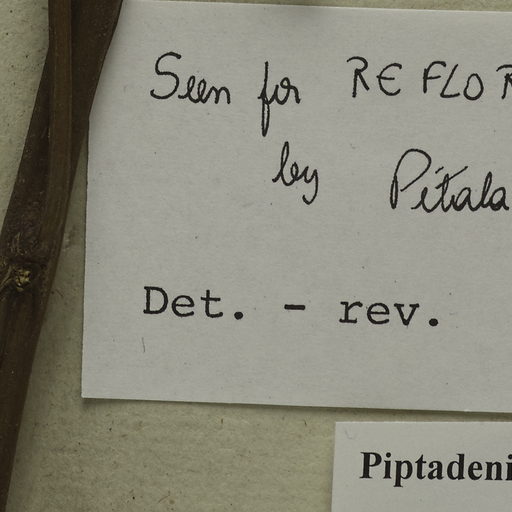 Seen for REFLOR
by Pétala
Det. - rev.
Piptadeni